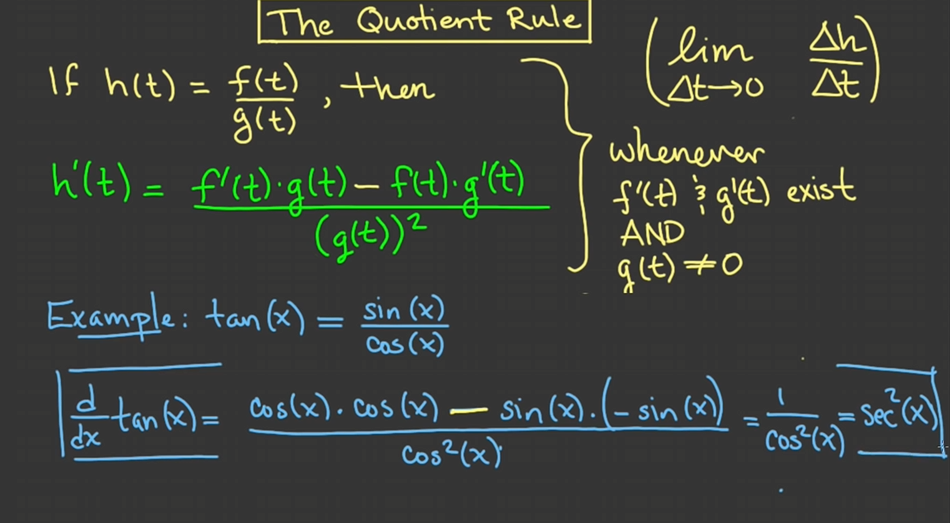 The Quotient Rule
If h(t) = f(t)/g(t), then
h'(t) = (f'(t)·g(t) − f(t)·g'(t))/(g(t))²
(lim Δt→0 Δh/Δt)
whenever
f'(t) & g'(t) exist
AND
g(t) ≠ 0
Example: tan(x) = sin(x)/cos(x)
d/dx tan(x) = (cos(x)·cos(x) − sin(x)·(−sin(x)))/cos²(x) = 1/cos²(x) = sec²(x)